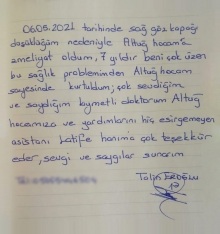 06.05.2021 tarihinde sağ göz kapağı
düşüklüğüm nedeniyle Altuğ hocama
ameliyat oldum, 7 yıldır beni çok üzen
bu sağlık probleminden Altuğ hocam
sayesinde kurtuldum; çok sevdiğim
ve saydığım kıymetli doktorum Altuğ
hocamıza ve yardımlarını hiç esirgemeyen
asistanı Latife hanıma çok teşekkür
eder, sevgi ve saygılar sunarım
Tülin EROĞLU